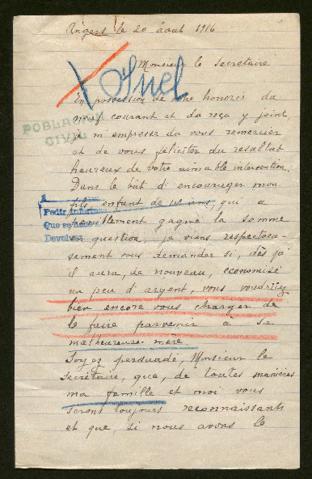 Angers le 20 août 1916
Monsieur le Secrétaire
En possession de votre honorée du
neuf courant et du reçu y joint,
je m'empresse de vous remercier
et de vous féliciter du résultat
heureux de votre aimable intervention.
POBLACIÓN
CIVIL
Dans le but d'encourager mon
fils, enfant de ans, qui a
Pedir
Que se
Devolver
péniblement gagné la somme
en question, je viens respectueu-
sement vous demander si, dès qu'
il aura, de nouveau, économisé
un peu d'argent, vous voudriez
bien encore vous charger de
le faire parvenir à sa
malheureuse mère.
Soyez persuadé, Monsieur le
Secrétaire, que, de toutes manières
ma famille et moi vous
serons toujours reconnaissants
et que, si nous avons le